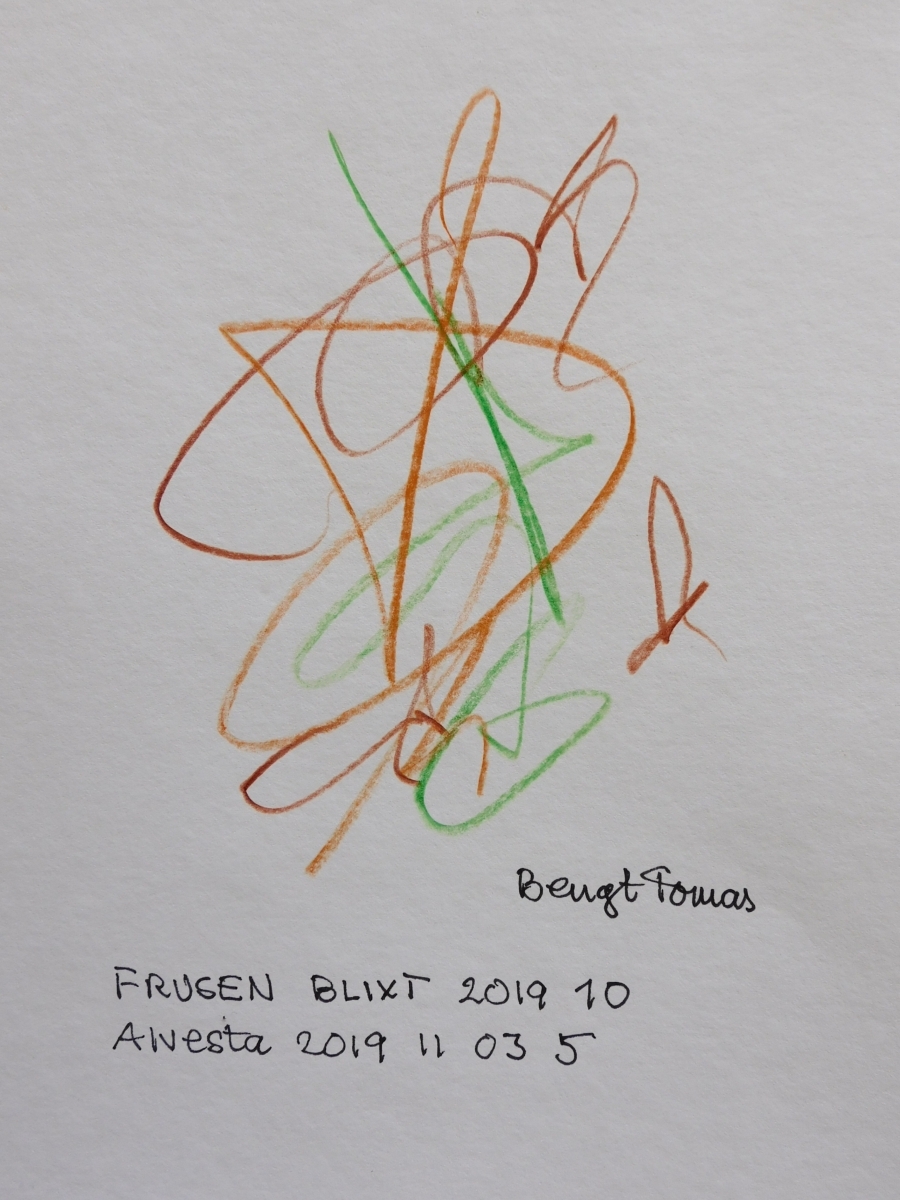 Bengt Tomas
FRUSEN BLIXT 2019 10
Alvesta 2019 11 03 5